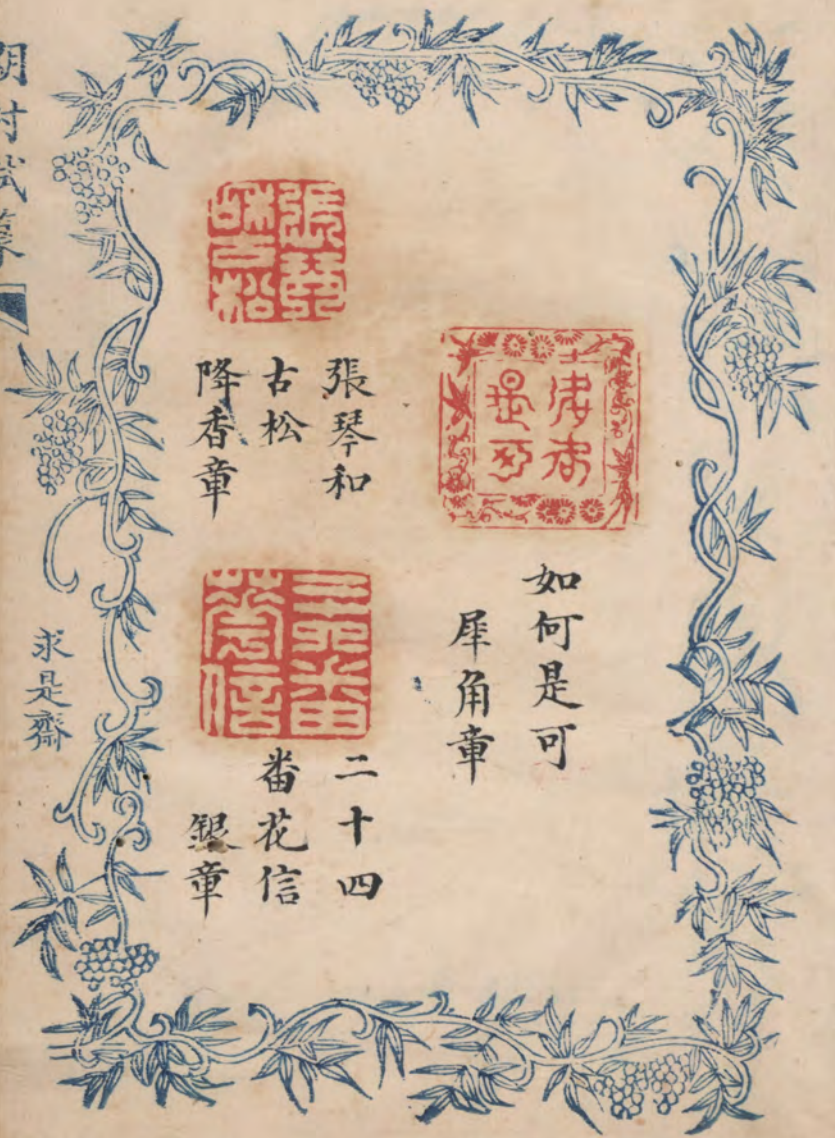 如何
是可
如何是可
犀角章
張琴
龢古松
張琴和
古松
降香章
二十四番
花信
二十四
畨花信
銀章
求是齋